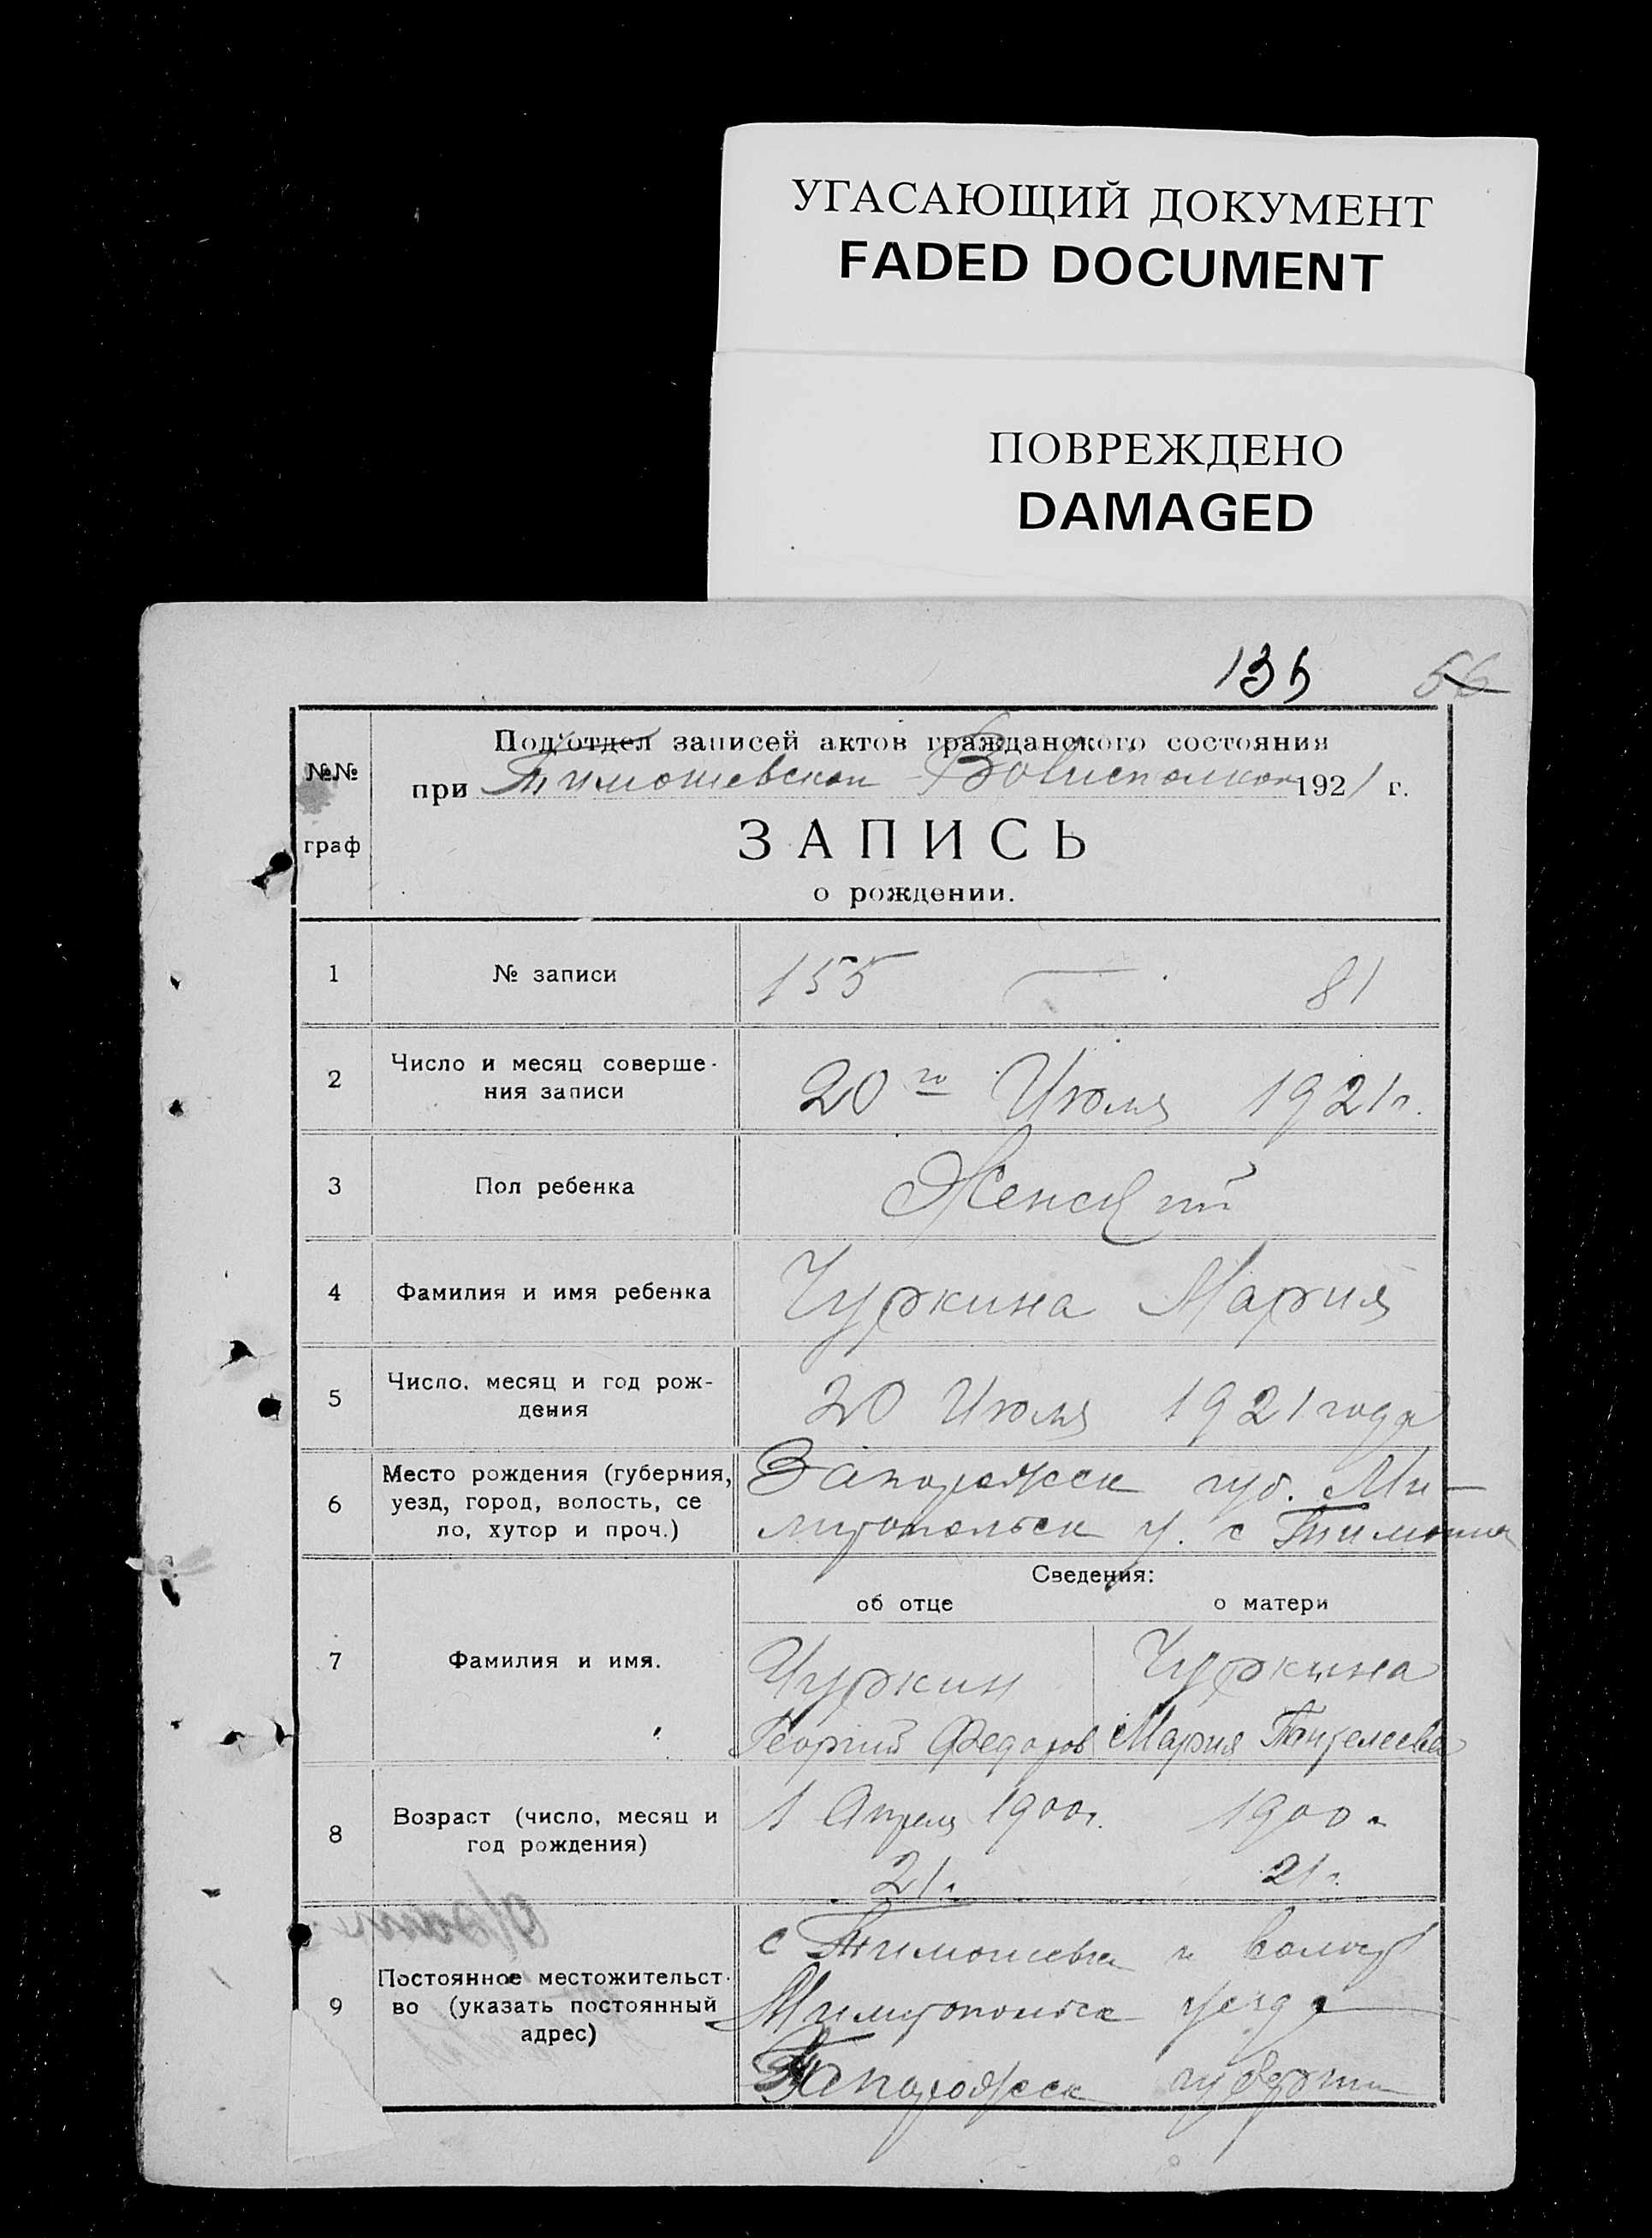 УГАСАЮЩИЙ ДОКУМЕНТ
FADED DOCUMENT
ПОВРЕЖДЕНО
DAMAGED
135 56
№№
граф
Под'отдел записей актов гражданского состояния
при Тимошевском Волисполком 1921 г.
ЗАПИСЬ
о рождении.
1 № записи 155 — . 81
2 Число и месяц соверше-
ния записи 20го Июля 1921 г.
3 Пол ребенка Женский
4 Фамилия и имя ребенка Чуркина Мария
5 Число, месяц и год рож-
дения 20 Июля 1921 года
6 Место рождения (губерния,
уезд, город, волость, се
ло, хутор и проч.)
Запорожск губ. Ми-
литопольск у. с
Сведения:
об отце о матери
7 Фамилия и имя.
Чуркин Чуркина
Георгий Федоров Мария Пантелеева
8 Возраст (число, месяц и
год рождения)
1 Апреля 1900г. 1900 г.
21 г. 21 г.
9 Постоянное местожительст-
во (указать постоянный
адрес)
с Тимошевка и волост
Милитопольск уезда
Запорожск губерни